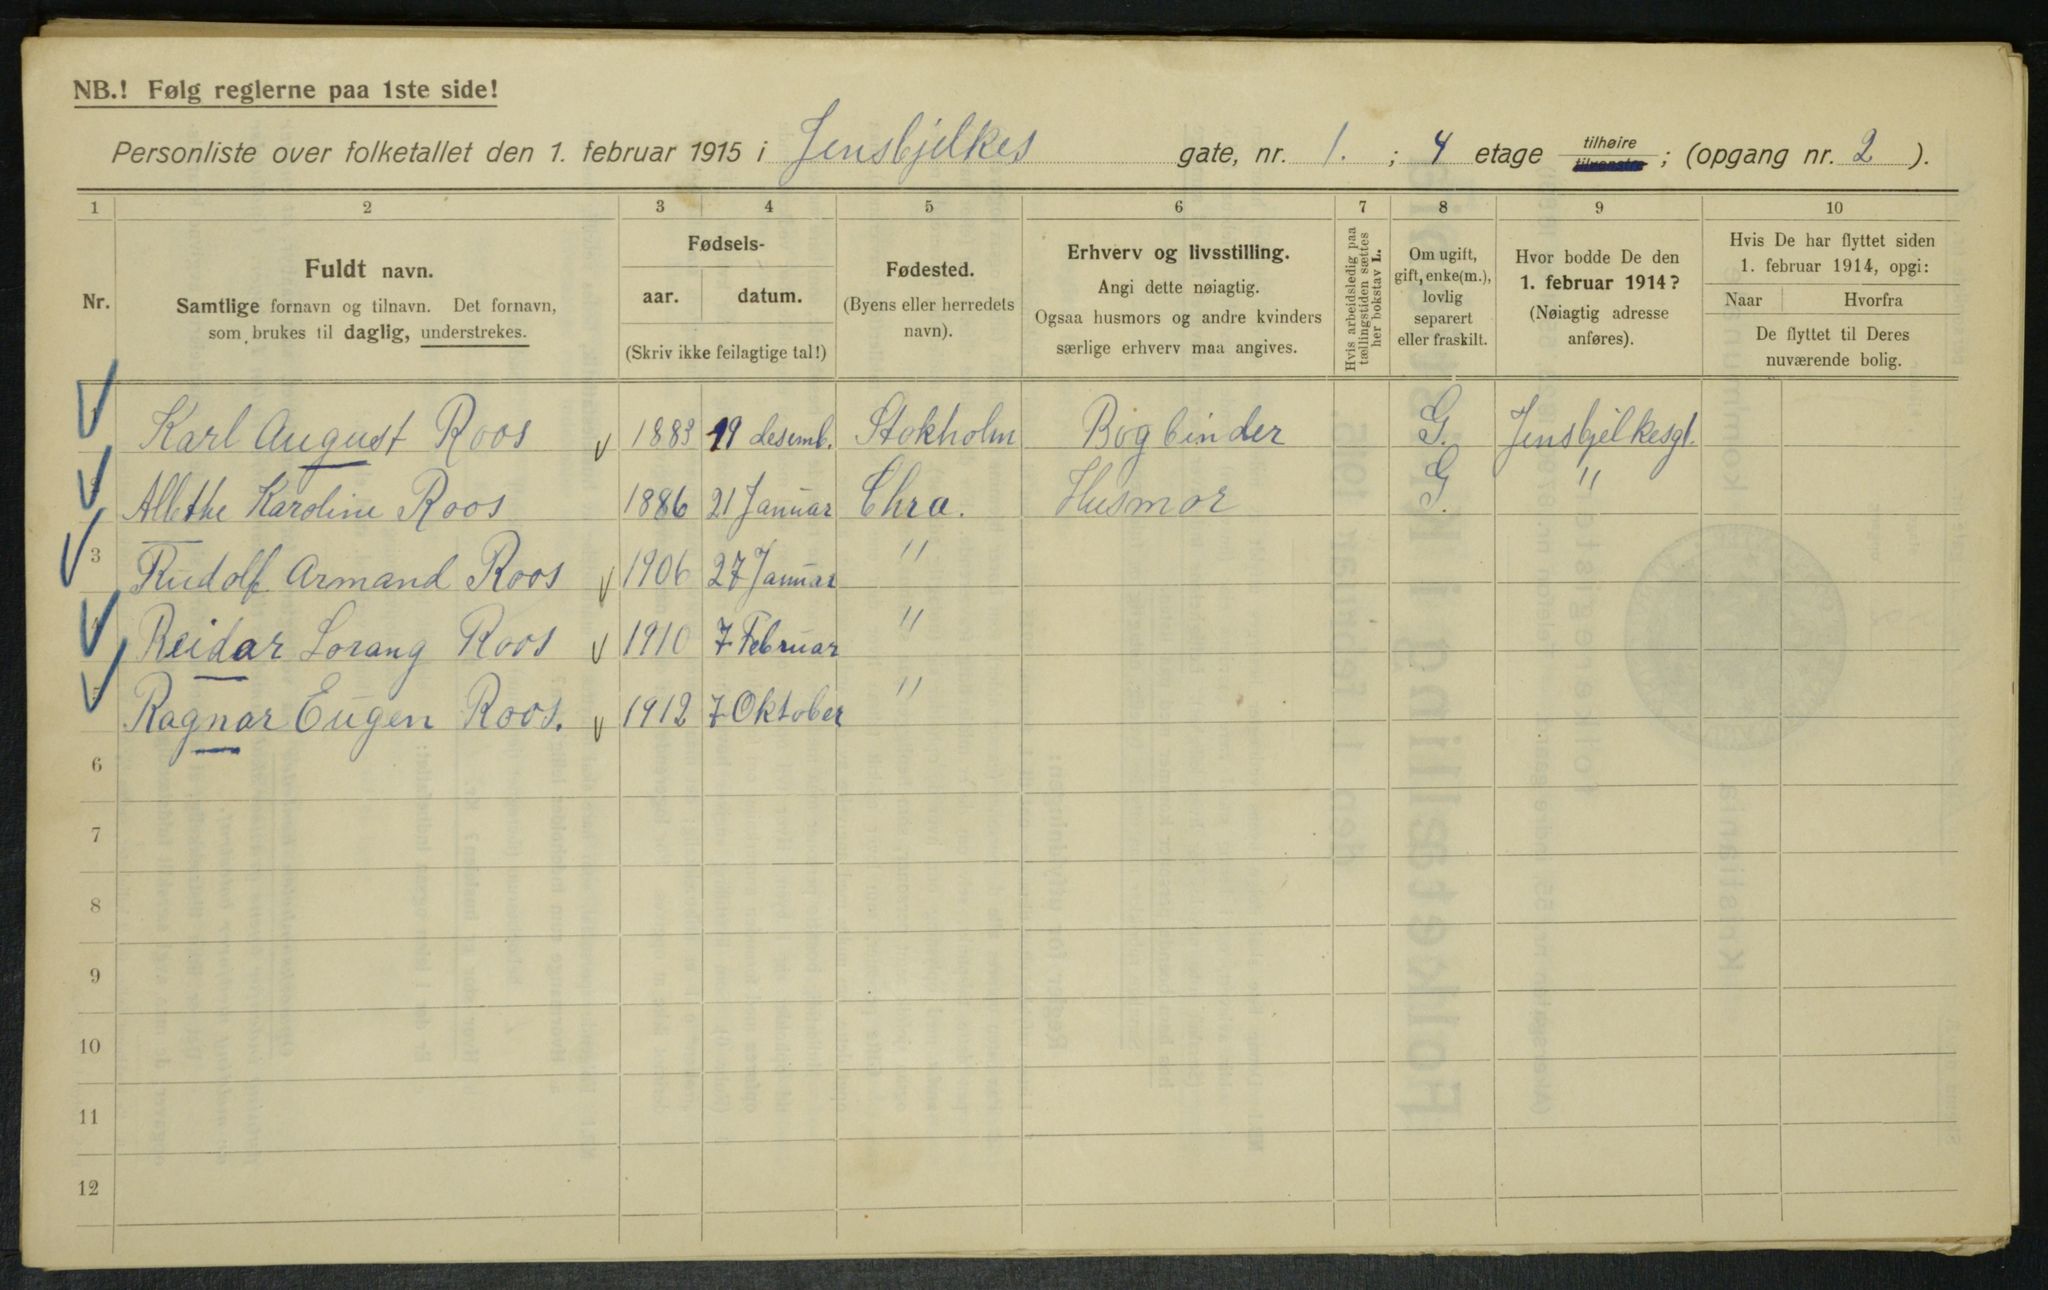 NB.! Følg reglerne paa 1ste side!
Personliste over folketallet den 1. februar 1915 i Jensbjelkes gate, nr. 1. ; 4 etage tilhøire tilvenstre ; (opgang nr. 2 ).
1 2 3 4 5 6 7 8 9 10
Nr.
Fuldt navn.
Samtlige fornavn og tilnavn. Det fornavn,
som brukes til daglig, understrekes.
Fødsels-
aar. datum.
(Skriv ikke feilagtige tal!)
Fødested.
(Byens eller herredets
navn).
Erhverv og livsstilling.
Angi dette nøiagtig.
Ogsaa husmors og andre kvinders
særlige erhverv maa angives.
Hvis arbeidsledig paa
tællingstiden sættes
her bokstav L.
Om ugift,
gift, enke(m.),
lovlig
separert
eller fraskilt.
Hvor bodde De den
1. februar 1914?
(Nøiagtig adresse
anføres).
Hvis De har flyttet siden
1. februar 1914, opgi:
Naar Hvorfra
De flyttet til Deres
nuværende bolig.
Karl August Roos 1883 19 desemb. Stokholm Bogbinder G. Jensbjelkesgt.
Allethe Karoline Roos 1886 21 Januar Chra. Husmor G. "
3 Rudolf Armand Roos 1906 27 Januar "
Reidar Lorang Roos 1910 7 Februar "
5 Ragnar Eugen Roos. 1912 7 Oktober "
6
7
8
9
10
11
12